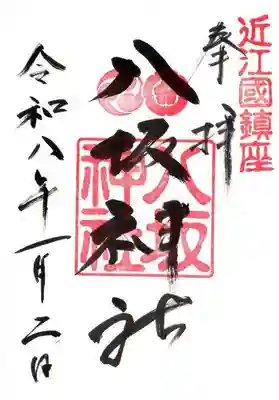 近江國鎮座
奉拝
八坂神社
八坂神社
令和八年一月二日